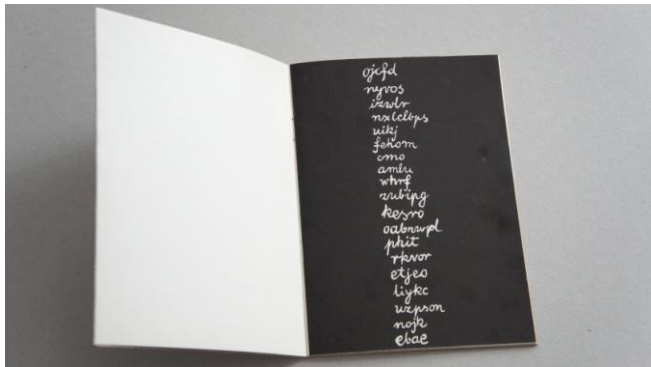 ojcfd
nyvos
izwlr
nxlclbps
uikj
fehom
cmo
amlu
whrf
zubipg
kesro
oabnwpl
phit
rkvor
etjeo
liykc
uzpson
nojk
ebae